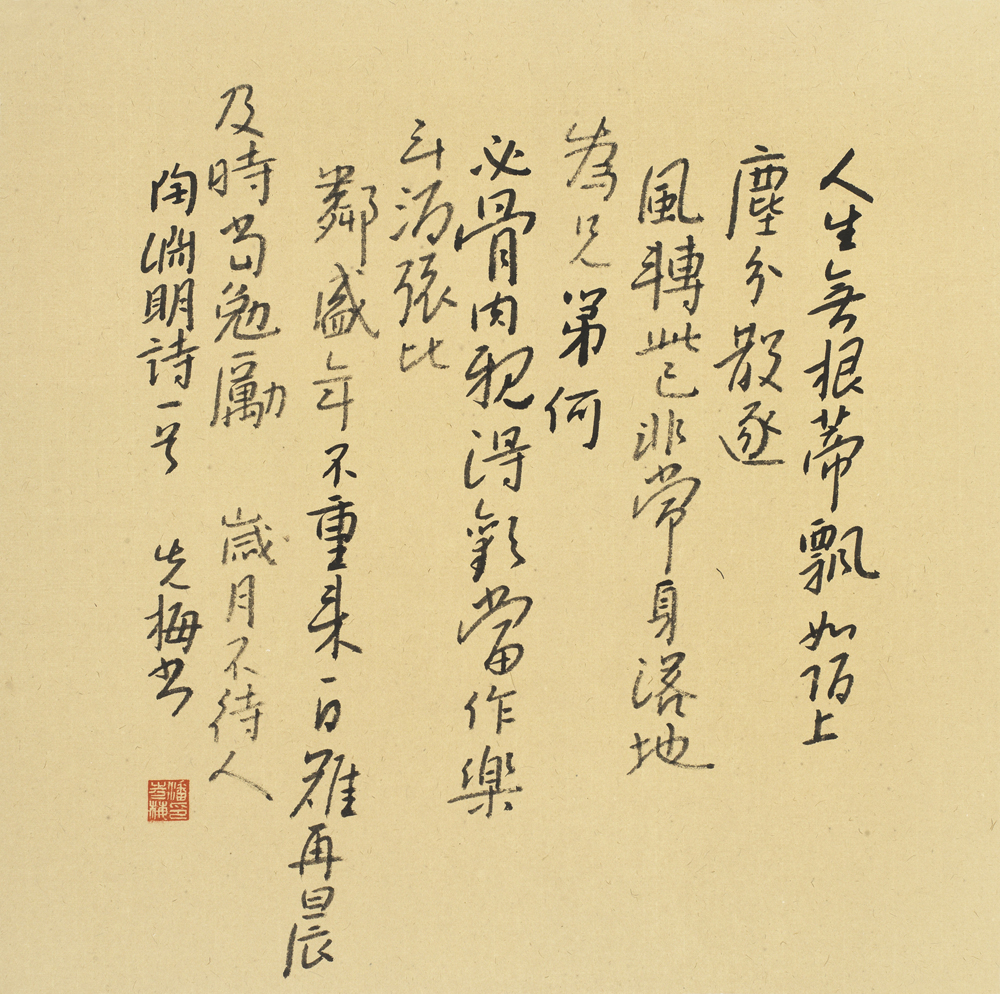 人生無根蒂飄如陌上
塵分散逐
風轉此已非常身落地
為兄弟何
必骨肉親得歡當作樂
斗酒張比
鄰盛年不重來一日難再晨
及時當勉勵 歲月不待人
陶淵明詩一首 先梅書